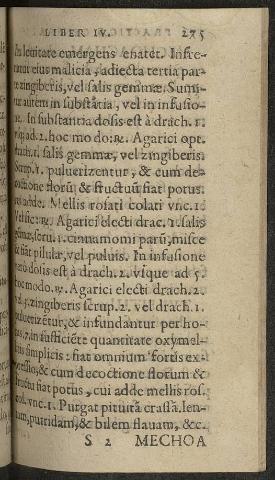 LIBER IV. 275
in leuitate emergens enatet. Infre-
tur eius malicia, adiecta tertia par-
te zingiberis, vel salis gemmæ. Sumi-
tur autem in substātia, vel in infusio-
ne. In substantia dosis est à drach. 1.
vsq; ad. 2. hoc modo: ℞. Agarici opt.
drach. 1. salis gemmæ, vel zingiberis
scrup. 1. puluerizentur, & cum de-
coctione florū & fructuū fiat potus.
cui adde. Mellis rosati colati vnc. 1.
Vel sic: ℞. Agarici electi drac. 1. salis
gemæ, scru. 1. cinnamomi parū, misce
& fiāt pilulæ, vel puluis. In infusione
verò dosis est à drach. 2. vsque ad 5.
hoc modo. ℞. Agarici electi drach. 2.
vel. 5. zingiberis scrup. 2. vel drach. 1.
puluerizētur, & infundantur per ho-
ras. 7. in sufficiēte quantitate oxymel-
lis simplicis: fiat omnium fortis ex-
pressio, & cum decoctione florum &
fructu fiat potus, cui adde mellis ros.
col. vnc. 1. Purgat pituitā crassā, len-
tam, putridam, & bilem flauam, &c.
S 2 MECHOA